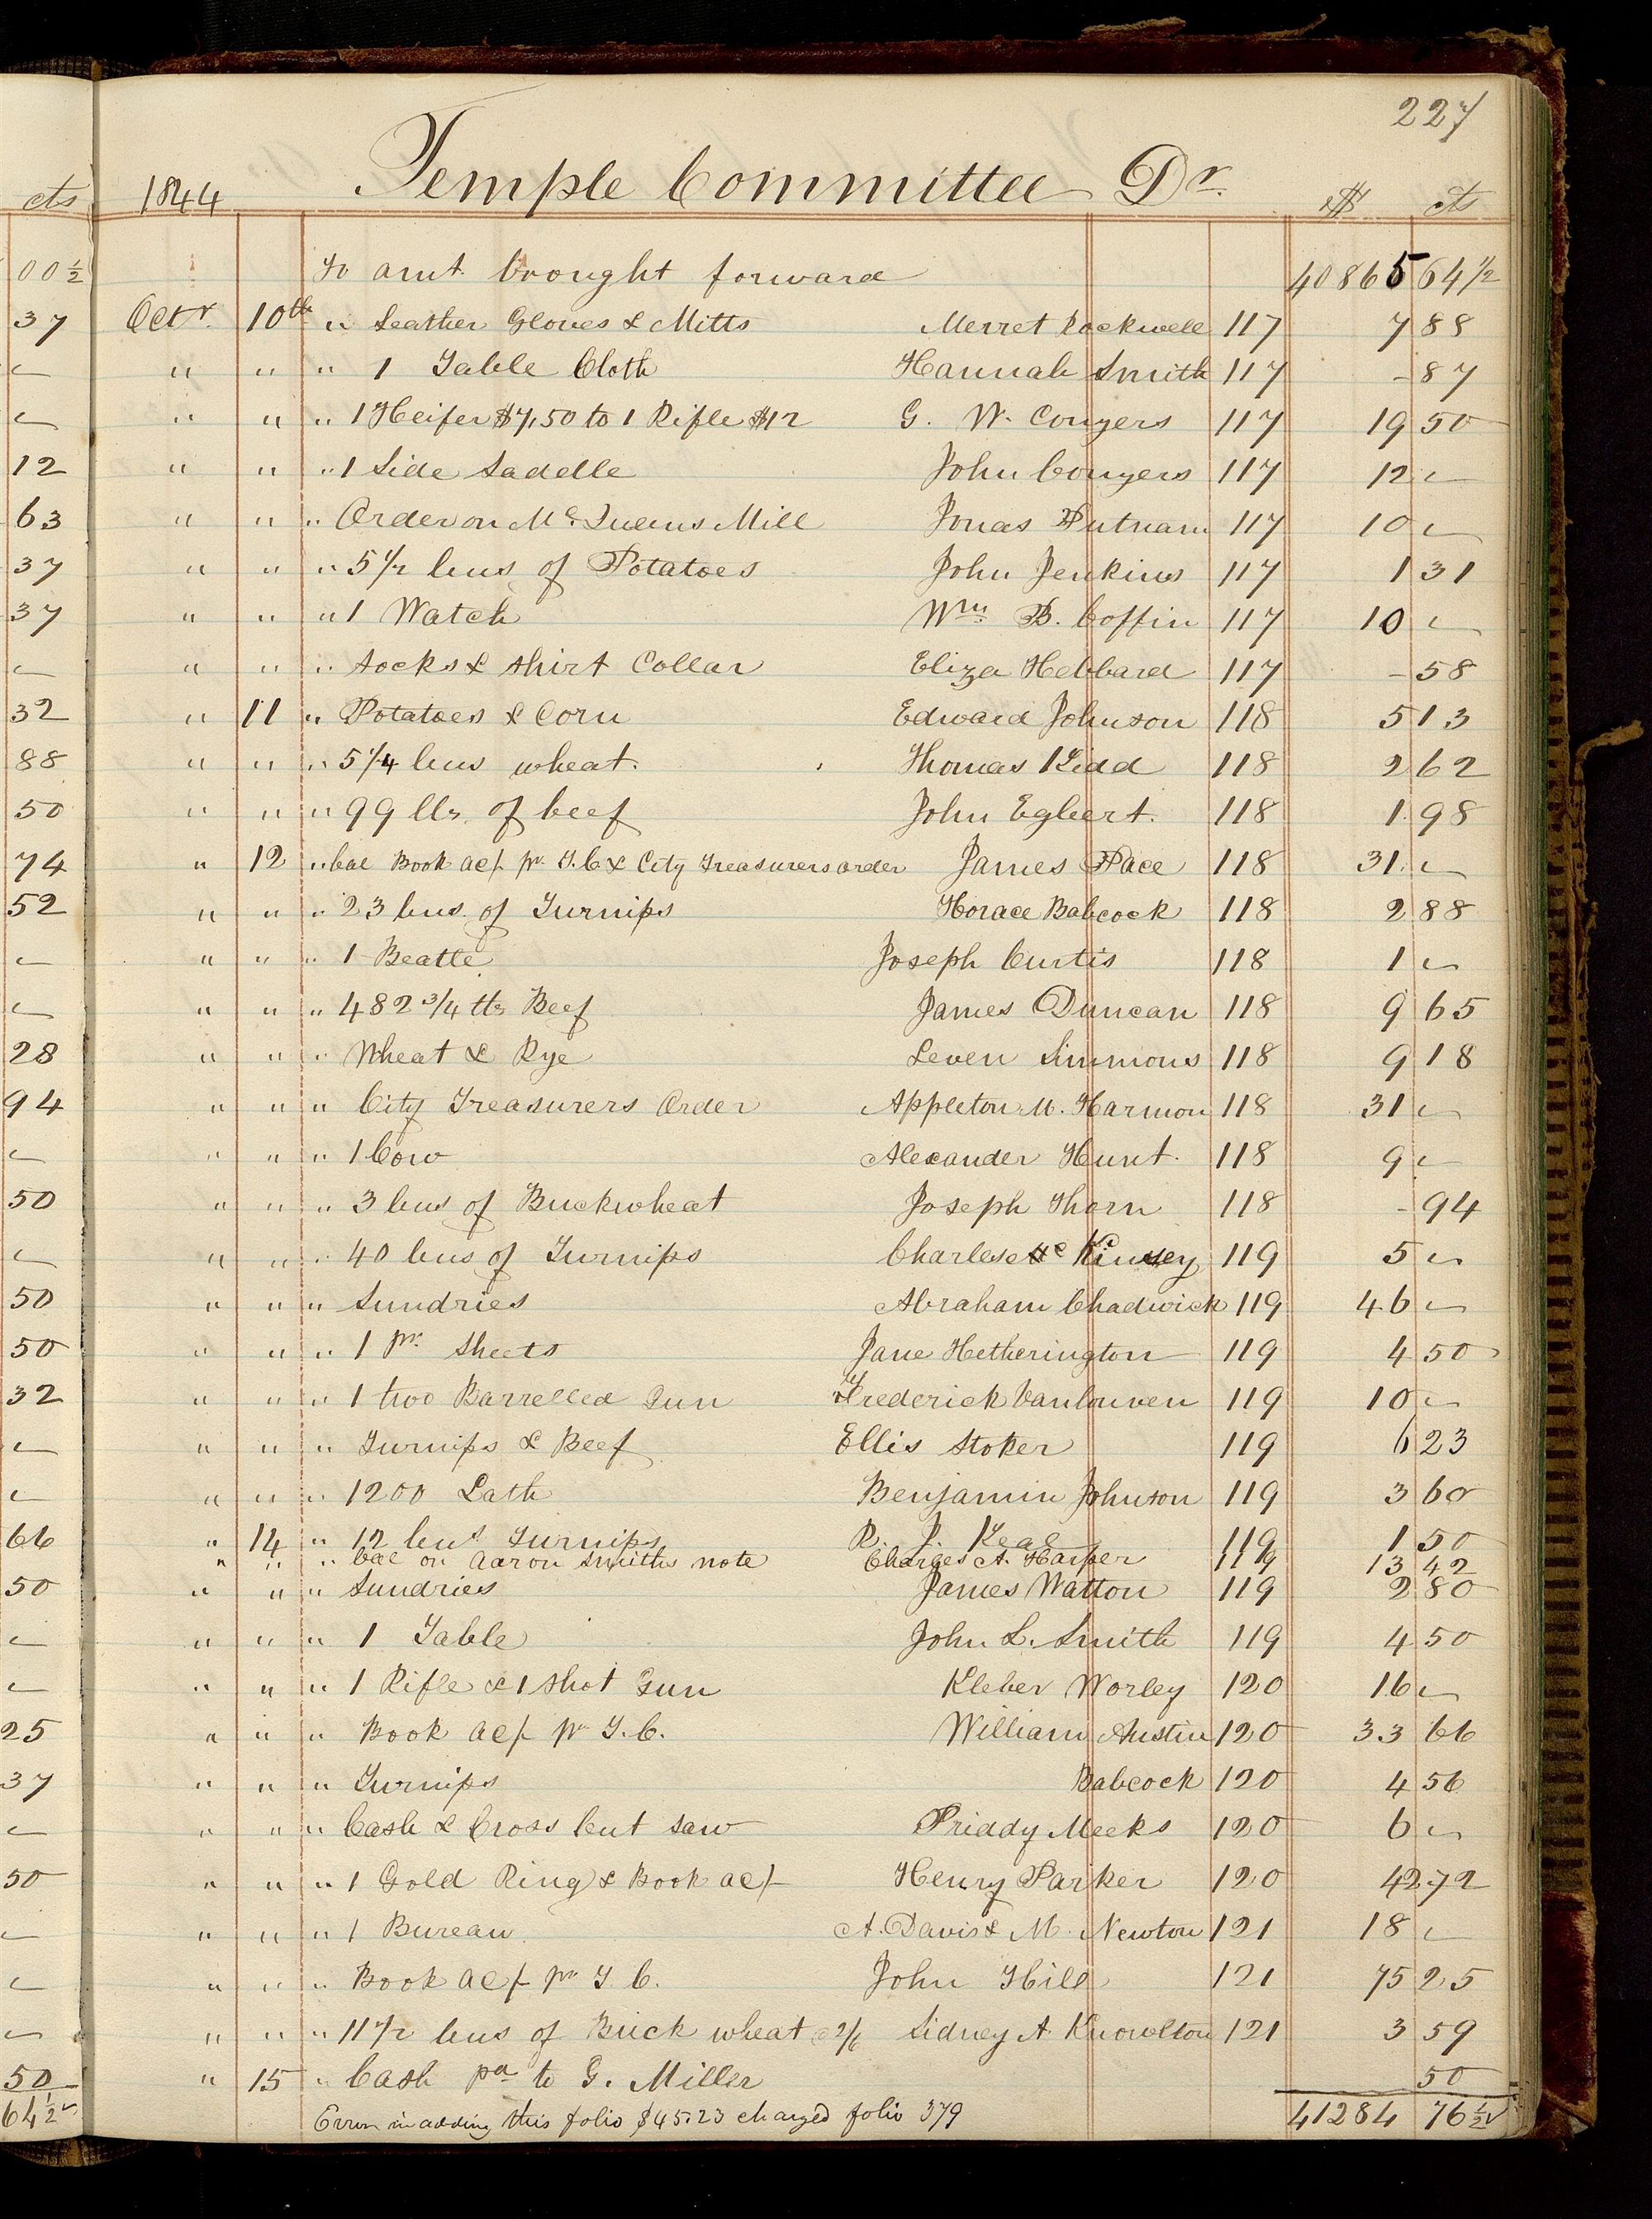 227
cts 1844 Temple Committee Dr. $ cts
00 1/2 To amt. brought forward 40865 64 1/2
37 Octr. 10th " Leather Gloves & Mitts Merret Rockwell 117 7 88
" " " 1 Table Cloth Hannah Smith 117 - 87
" " " 1 Heifer $7,50 to 1 Rifle $12 G. W. Conyers 117 19 50
12 " " " 1 Side Sadelle John Conyers 117 12 -
63 " " " Order on Mc.Queens Mill Jonas Putnam 117 10 -
37 " " " 5 1/2 bus of Potatoes John Jenkins 117 1 31
37 " " " 1 Watch Wm. B. Coffin 117 10 -
" " " Socks & Shirt Collar Eliza Hebbard 117 - 58
32 " 11 " Potatoes & Corn Edward Johnson 118 5 13
88 " " " 5 1/4 bus wheat. Thomas Kidd 118 2 62
50 " " " 99 lbs. of beef John Egbert. 118 1 98
74 " 12 " bal Book ac/- pr. T.C & City Treasurers order James Pace 118 31 -
52 " " " 23 bus. of Turnips Horace Babcock 118 2 88
" " " 1 Beatle Joseph Curtis 118 1 -
" " " 482 3/4 lbs Beef James Duncan 118 9 65
28 " " " Wheat & Rye Leven Simmons 118 9 18
94 " " " City Treasurers Order Appleton M. Harmon 118 31 -
" " " 1 Cow Alexander Hunt. 118 9 -
50 " " " 3 bus of Buckwheat Joseph Thorn 118 - 94
" " " 40 bus of Turnips Charles 119 5 -
50 " " " Sundries Abraham Chadwick 119 46 -
50 " " " 1 pr. Sheets Jane Hetherington 119 4 50
32 " " " 1 two Barrelled Gun Frederick Vanlouven 119 10 -
" " " Turnips & Beef Ellis Stoker 119 6 23
" " " 1200 Lath Benjamin Johnson 119 3 60
66 " 14 " 12 bus Turnips 119 1 50
" " " bal on Aaron Smiths note Charges A. Harper 119 13 42
50 " " " Sundries James Watton 119 2 80
" " " 1 Table John L. Smith 119 4 50
" " " 1 Rifle & 1 Shot Gun Kleber Worley 120 16 -
25 " " " Book ac/- pr T.C. William Austin 120 33 66
37 " " " Turnips Babcock 120 4 56
" " " Cash & Cross Cut Saw Priddy Meeks 120 6 -
50 " " " 1 Gold Ring & Book ac/- Henry Parker 120 42 72
" " " 1 Bureau A. Davis & M. Newton 121 18 -
" " " Book ac/- pr T.C. John Hill 121 75 25
" " " 11 1/2 bus of Buck wheat @ 2/6 Sidney A. Knowlton 121 3 59
50 " 15 " Cash pd to G. Miller 50
64 1/2 Error in adding this folio $45.23 charged folio 379 41284 76 1/2